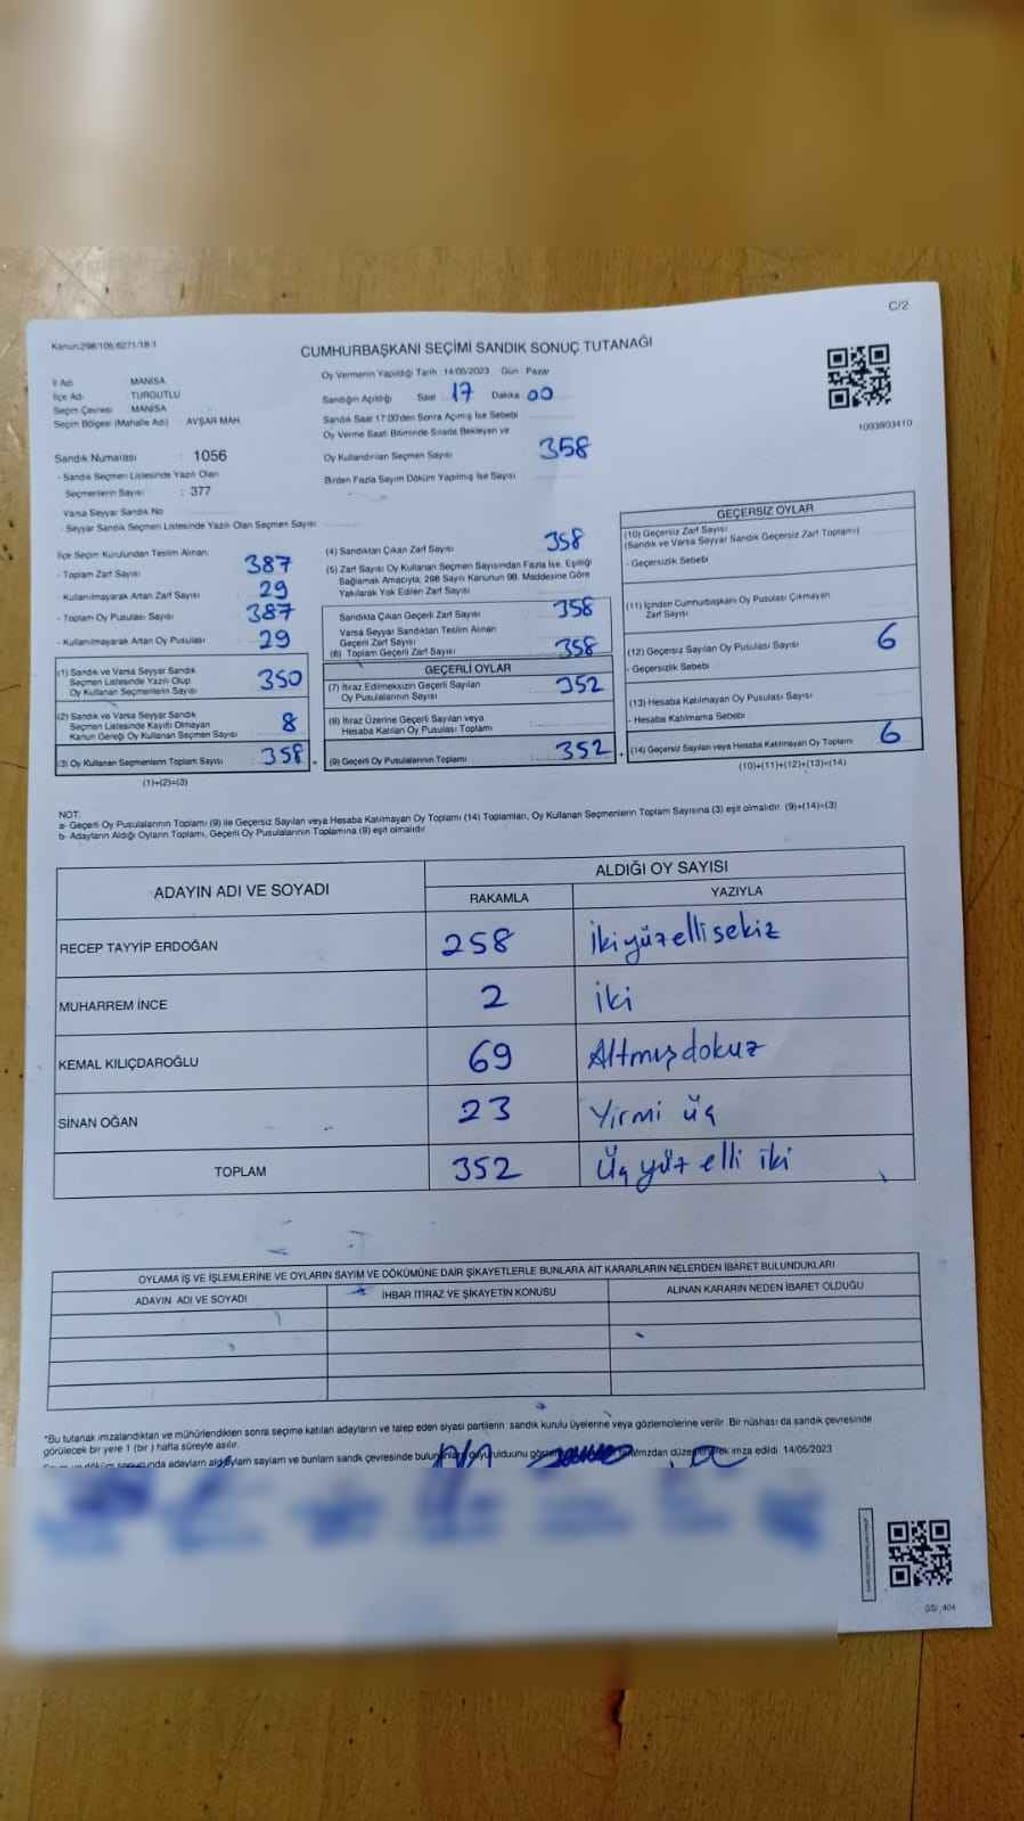 C/2
Kanun:298/106,6271/18-1
CUMHURBAŞKANI SEÇİMİ SANDIK SONUÇ TUTANAĞI
İl Adı MANİSA
İlçe Adı TURGUTLU
Seçim Çevresi MANİSA
Seçim Bölgesi (Mahalle Adı) AVŞAR MAH.
Oy Vermenin Yapıldığı Tarih :14/05/2023 Gün Pazar
Sandığın Açıldığı Saat 17 Dakika 00
Sandık Saat 17:00'den Sonra Açılmış İse Sebebi
Oy Verme Saati Bitiminde Sırada Bekleyen ve
Oy Kullandırılan Seçmen Sayısı 358
Birden Fazla Sayım Döküm Yapılmış İse Sayısı
1093803410
Sandık Numarası : 1056
- Sandık Seçmen Listesinde Yazılı Olan
Seçmenlerin Sayısı : 377
Varsa Seyyar Sandık No
- Seyyar Sandık Seçmen Listesinde Yazılı Olan Seçmen Sayısı
İlçe Seçim Kurulundan Teslim Alınan:
- Toplam Zarf Sayısı 387
- Kullanılmayarak Artan Zarf Sayısı 29
- Toplam Oy Pusulası Sayısı 387
- Kullanılmayarak Artan Oy Pusulası 29
(1) Sandık ve Varsa Seyyar Sandık
Seçmen Listesinde Yazılı Olup
Oy Kullanan Seçmenlerin Sayısı 350
(2) Sandık ve Varsa Seyyar Sandık
Seçmen Listesinde Kayıtlı Olmayan
Kanun Gereği Oy Kullanan Seçmen Sayısı 8
(3) Oy Kullanan Seçmenlerin Toplam Sayısı 358
(1)+(2)=(3)
(4) Sandıktan Çıkan Zarf Sayısı 358
(5) Zarf Sayısı Oy Kullanan Seçmen Sayısından Fazla İse, Eşitliği
Sağlamak Amacıyla, 298 Sayılı Kanunun 98. Maddesine Göre
Yakılarak Yok Edilen Zarf Sayısı
Sandıkta Çıkan Geçerli Zarf Sayısı 358
Varsa Seyyar Sandıktan Teslim Alınan
Geçerli Zarf Sayısı
(6) Toplam Geçerli Zarf Sayısı 358
GEÇERLİ OYLAR
(7) İtiraz Edilmeksizin Geçerli Sayılan
Oy Pusulalarının Sayısı 352
(8) İtiraz Üzerine Geçerli Sayılan veya
Hesaba Katılan Oy Pusulası Toplamı
(9) Geçerli Oy Pusulalarının Toplamı 352
GEÇERSİZ OYLAR
(10) Geçersiz Zarf Sayısı
(Sandık ve Varsa Seyyar Sandık Geçersiz Zarf Toplamı)
- Geçersizlik Sebebi
(11) İçinden Cumhurbaşkanı Oy Pusulası Çıkmayan
Zarf Sayısı
(12) Geçersiz Sayılan Oy Pusulası Sayısı 6
- Geçersizlik Sebebi
(13) Hesaba Katılmayan Oy Pusulası Sayısı
- Hesaba Katılmama Sebebi
(14) Geçersiz Sayılan veya Hesaba Katılmayan Oy Toplamı 6
(10)+(11)+(12)+(13)=(14)
NOT:
a- Geçerli Oy Pusulalarının Toplamı (9) ile Geçersiz Sayılan veya Hesaba Katılmayan Oy Toplamı (14) Toplamları, Oy Kullanan Seçmenlerin Toplam Sayısına (3) eşit olmalıdır. (9)+(14)=(3)
b- Adayların Aldığı Oyların Toplamı, Geçerli Oy Pusulalarının Toplamına (9) eşit olmalıdır.
ADAYIN ADI VE SOYADI ALDIĞI OY SAYISI
RAKAMLA YAZIYLA
RECEP TAYYİP ERDOĞAN 258 İkiyüzellisekiz
MUHARREM İNCE 2 iki
KEMAL KILIÇDAROĞLU 69 Altmışdokuz
SİNAN OĞAN 23 Yirmi üç
TOPLAM 352 Üç yüz elli iki
OYLAMA İŞ VE İŞLEMLERİNE VE OYLARIN SAYIM VE DÖKÜMÜNE DAİR ŞİKAYETLERLE BUNLARA AİT KARARLARIN NELERDEN İBARET BULUNDUKLARI
ADAYIN ADI VE SOYADI İHBAR İTİRAZ VE ŞİKAYETİN KONUSU ALINAN KARARIN NEDEN İBARET OLDUĞU
*Bu tutanak imzalandıktan ve mühürlendikten sonra seçime katılan adayların ve talep eden siyasi partilerin sandık kurulu üyelerine veya gözlemcilerine verilir. Bir nüshası da sandık çevresinde
görülecek bir yere 1 (bir ) hafta süreyle asılır.
adayların aldığı oyların sayısını ve bunların sandık çevresinde imza edildi. 14/05/2023